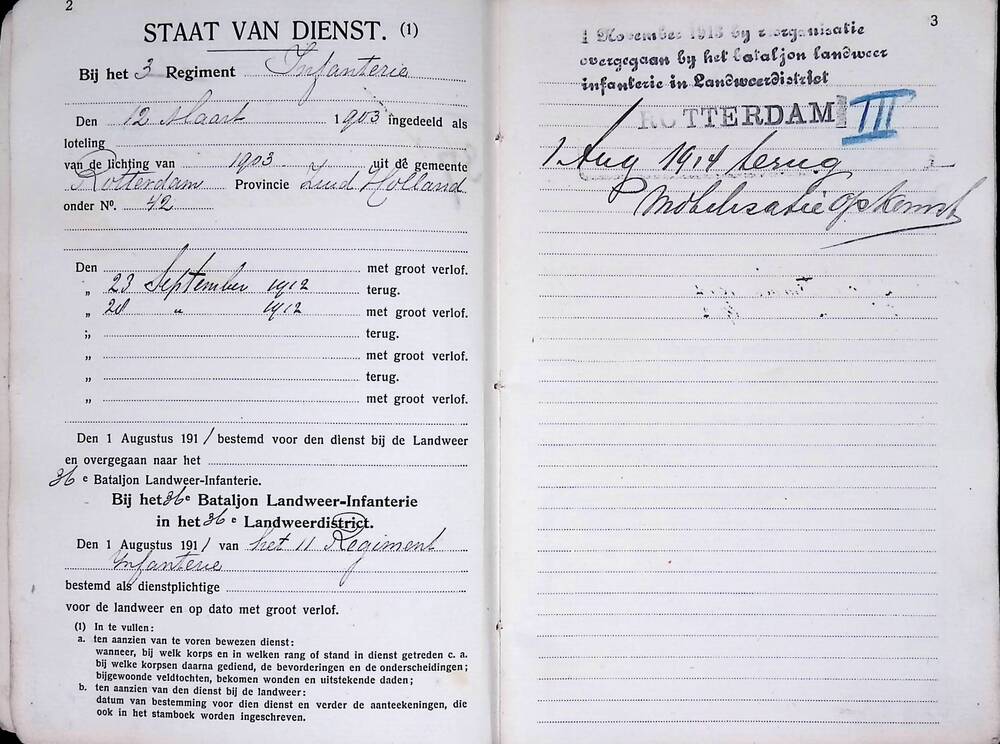 2
STAAT VAN DIENST. (1)
Bij het 3 Regiment Infanterie
Den 12 Maart 1903 ingedeeld als
loteling
van de lichting van 1903 uit de gemeente
Rotterdam Provincie Zuid Holland
onder No. 42
Den met groot verlof.
„ 23 September 1912 terug.
„ 28 „ 1912 met groot verlof.
„ terug.
„ met groot verlof.
„ terug.
„ met groot verlof.
Den 1 Augustus 1911 bestemd voor den dienst bij de Landweer
en overgegaan naar het
36 e Bataljon Landweer-Infanterie.
Bij het 36e Bataljon Landweer-Infanterie
in het 36 e Landweerdistrict.
Den 1 Augustus 1911 van het 11 Regiment
Infanterie
bestemd als dienstplichtige
voor de landweer en op dato met groot verlof.
(1) In te vullen:
a. ten aanzien van te voren bewezen dienst:
wanneer, bij welk korps en in welken rang of stand in dienst getreden c. a.
bij welke korpsen daarna gediend, de bevorderingen en de onderscheidingen;
bijgewoonde veldtochten, bekomen wonden en uitstekende daden;
b. ten aanzien van den dienst bij de landweer:
datum van bestemming voor dien dienst en verder de aanteekeningen, die
ook in het stamboek worden ingeschreven.
3
1 November 1913 by reorganisatie
overgegaan by het bataljon landweer
infanterie in Landweerdistrict
ROTTERDAM III
1 Aug 1914 terug
Mobilisatie opkomst